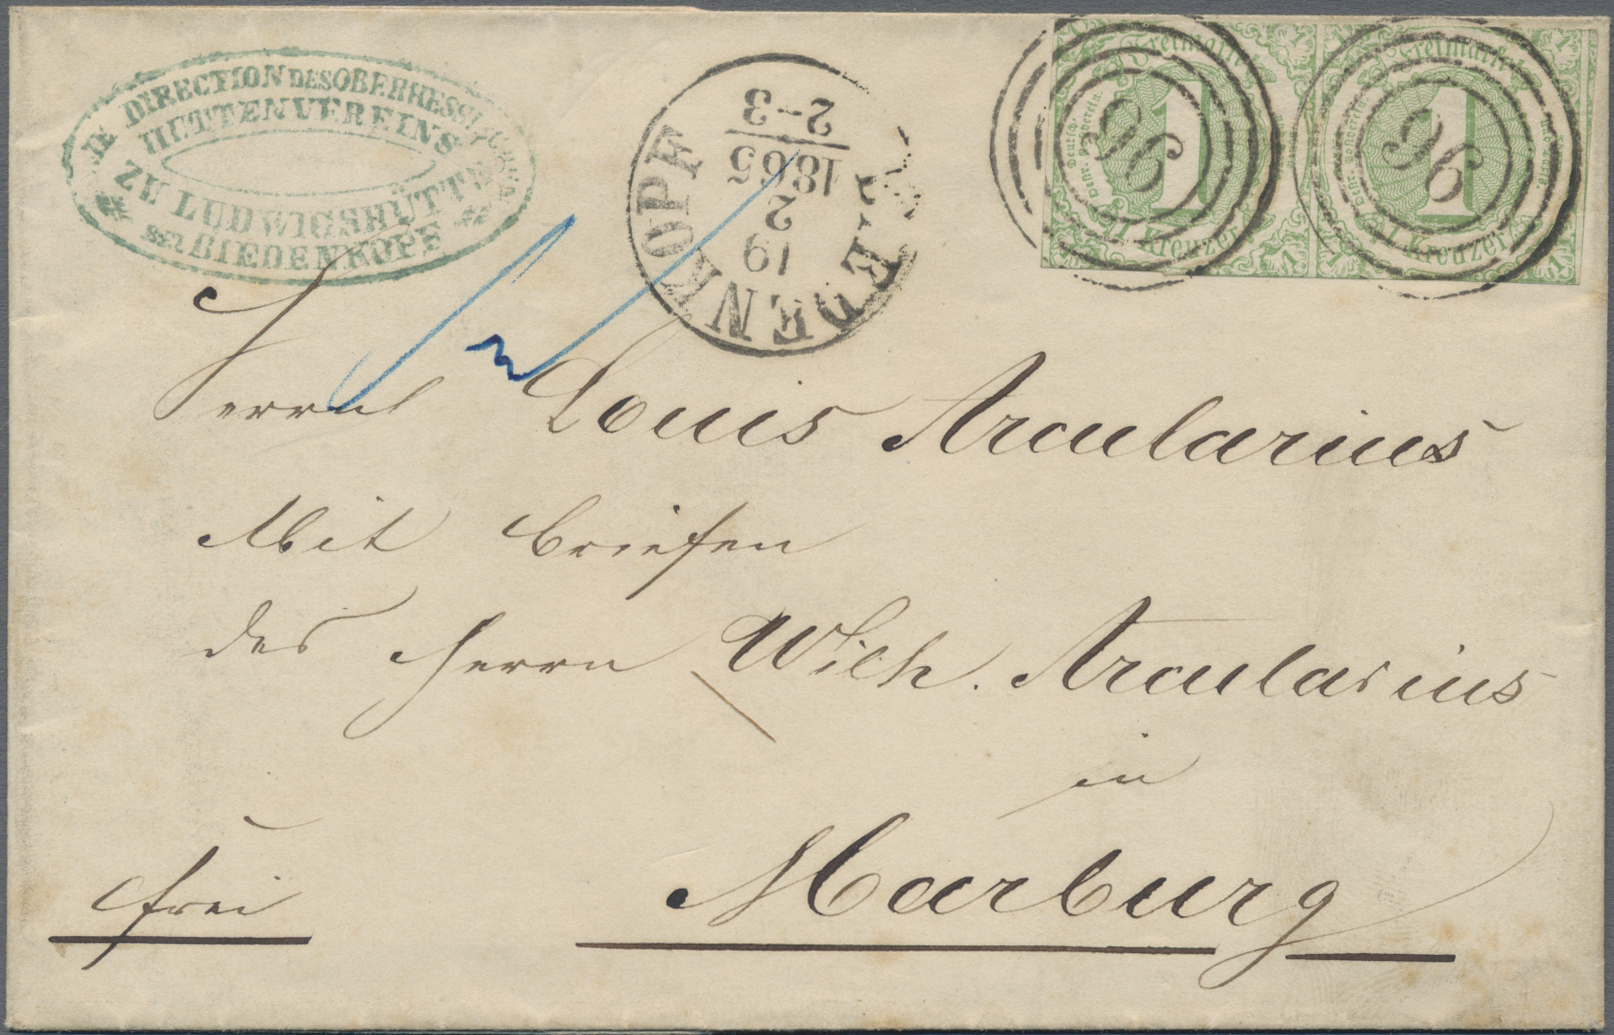 DIE DIRECTION DES OBERHESSISCHEN
HÜTTENVEREINS
ZU LUDWIGSHÜTTE
BEI BIEDENKOPF
BIEDENKOPF
19
2
1865
2-3
Freimarke
1
1 Kreuzer
96
Freimarke
1
1 Kreuzer
96
Herrn Louis Arcularius
Mit Briefen
des Herrn Wilh. Arcularius
in
frei Marburg